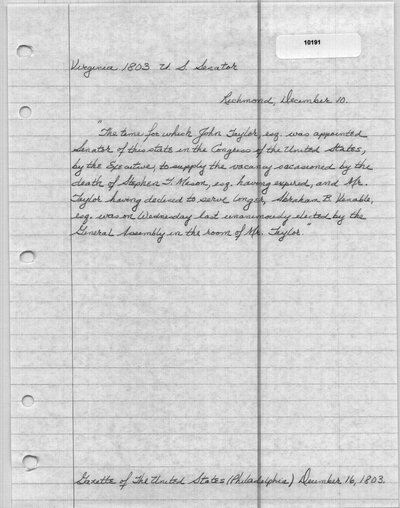 10191
Virginia 1803 U. S. Senator
Richmond, December 10.
"The time for which John Taylor, esq. was appointed
Senator of this state in the Congress of the United States,
by the Executive, to supply the vacancy occasioned by the
death of Stephen T. Mason, esq. having expired, and Mr.
Taylor having declined to serve longer, Abraham B. Venable,
esq. was on Wednesday last unanimously elected by the
General Assembly in the room of Mr. Taylor."
Gazette of The United States (Philadelphia) December 16, 1803.